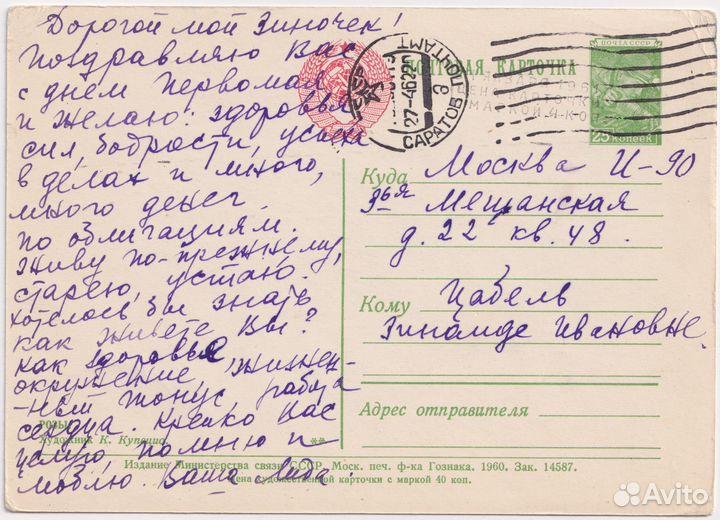 Дорогой мой Зиночек!
Поздравляю Вас
с днем Первомая
и желаю: здоровья
сил, бодрости, успеха
в делах и много,
много денег
по облигациям.
Живу по-прежнему,
старею, устаю.
Хотелось бы знать
как живете Вы?
как здоровье
окружение, жизнен-
-ный тонус, работа
сердца. Крепко Вас
целую, помню и
люблю. Ваша Лида.
РОЗЫ
Художник К. Купецио
**
ПОЧТОВАЯ КАРТОЧКА
ПОЧТА СССР
25 КОПЕЕК
САРАТОВ ПОЧТАМТ
27-4622
Куда Москва И-90
3ья Мещанская
д. 22 кв. 48.
Кому Цабель
Зинаиде Ивановне.
Адрес отправителя
Издание Министерства связи СССР. Моск. печ. ф-ка Гознака. 1960. Зак. 14587.
Цена художественной карточки с маркой 40 коп.
Avito